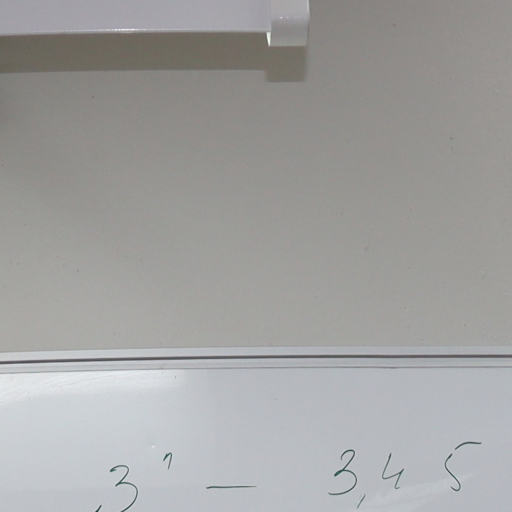 „3" — 3,4 5